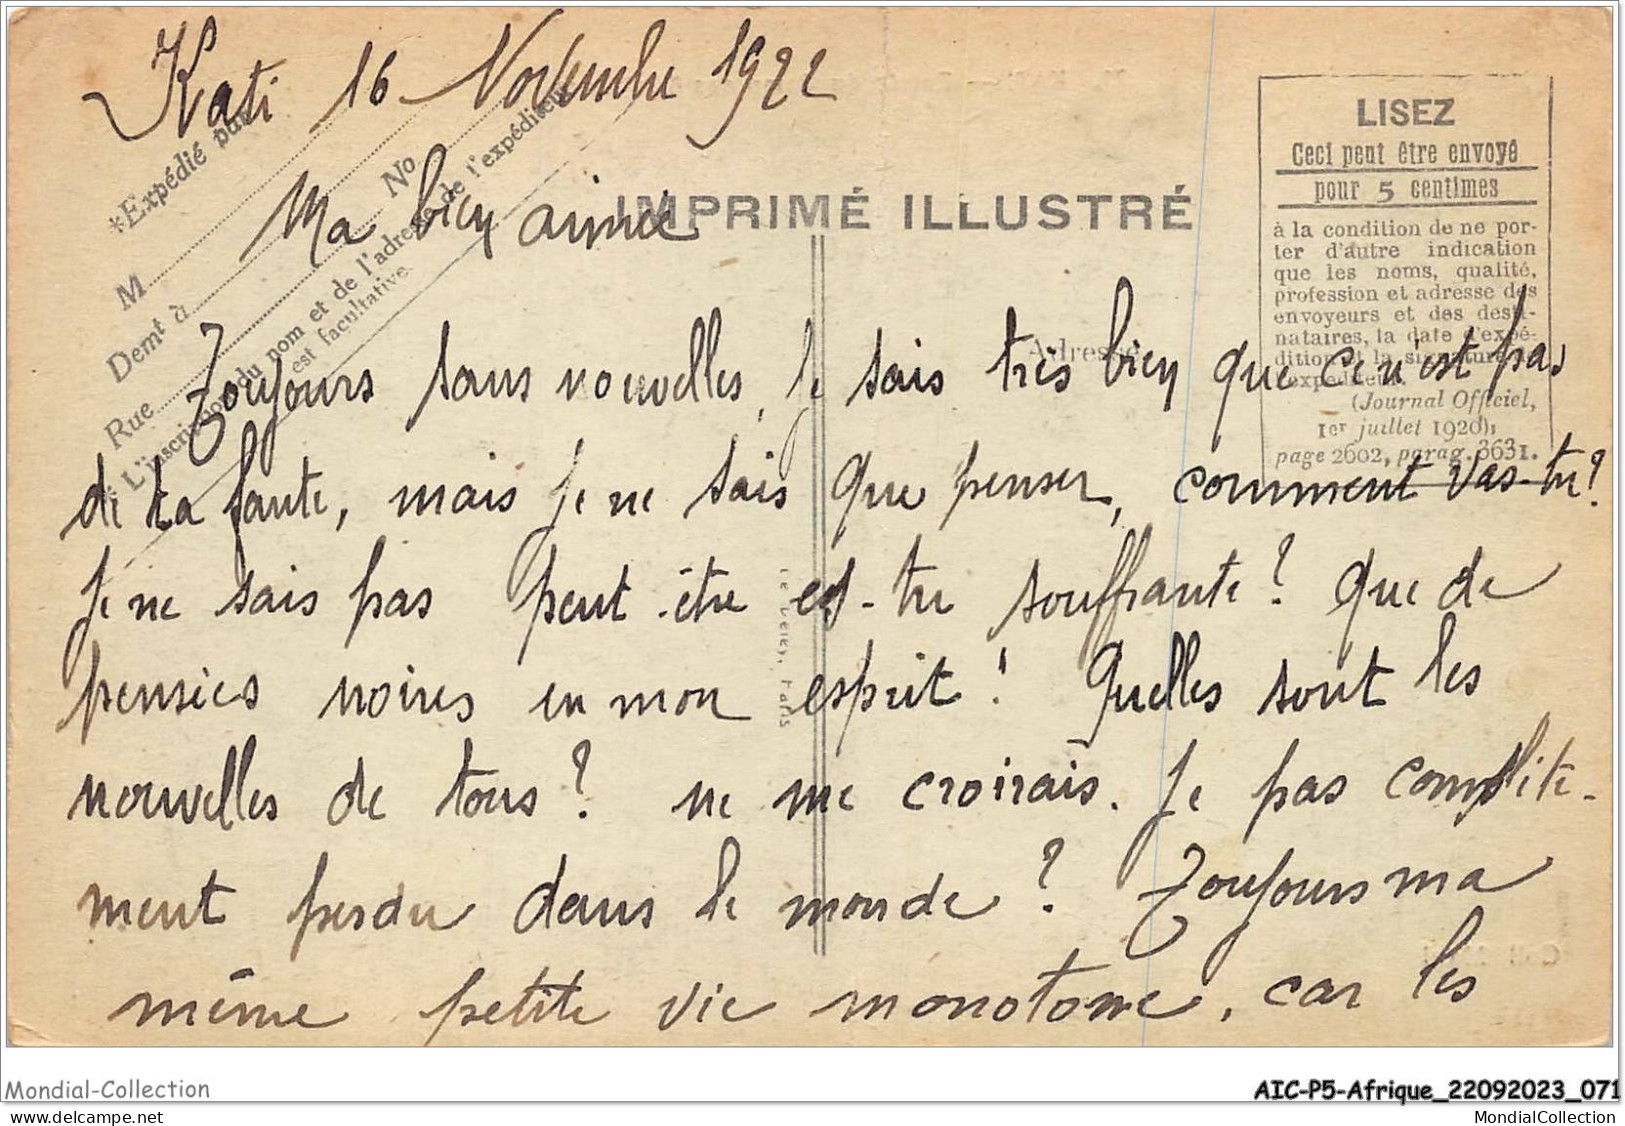 Kati 16 Novembre 1922
Ma bien aimée
Toujours sans nouvelles, je sais très bien que ce n'est pas
de ta faute, mais je ne sais que penser, comment vas-tu?
Je ne sais pas peut-être es-tu souffrante? Que de
pensées noires en mon esprit! Quelles sont les
nouvelles de tous? ne me croirais-je pas complète-
ment perdu dans le monde? Toujours ma
même petite vie monotone, car les
*Expédié par
M
Demt à
Rue
No
L'inscription du nom et de l'adresse de l'expéditeur
est facultative.
IMPRIMÉ ILLUSTRÉ
Adresse
LISEZ
Ceci peut être envoyé
pour 5 centimes
à la condition de ne por-
ter d'autre indication
que les noms, qualité,
profession et adresse des
envoyeurs et des desti-
nataires, la date d'expé-
dition et la signature de
l'expéditeur.
(Journal Officiel,
1er juillet 1920),
page 2602, parag. 3631.
Paris
Mondial-Collection
AIC-P5-Afrique_22092023_071
MondialCollection